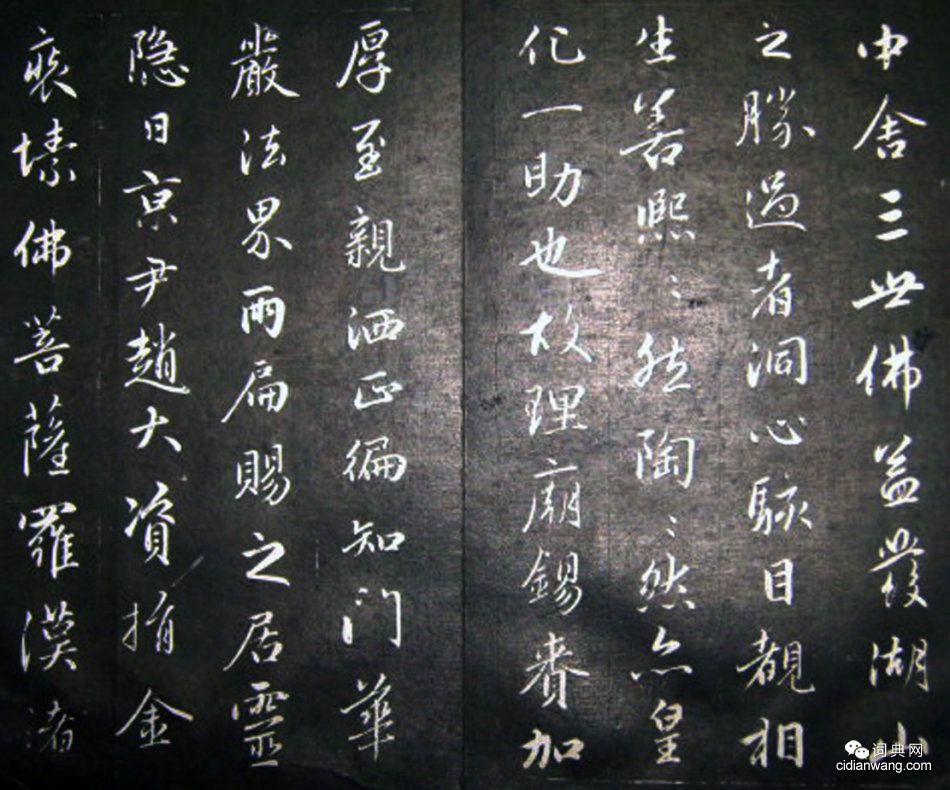 中舍三世佛益發湖山
之勝過者洞心駭目覩相
生善熙〻然陶〻然亦皇
化一助也故理廟錫賚加
厚至親洒正徧知門華
嚴法界兩扁賜之居靈
隐日亰尹趙大資捐金
裒塐佛菩薩羅漢渚
词典网
cidianwang.com